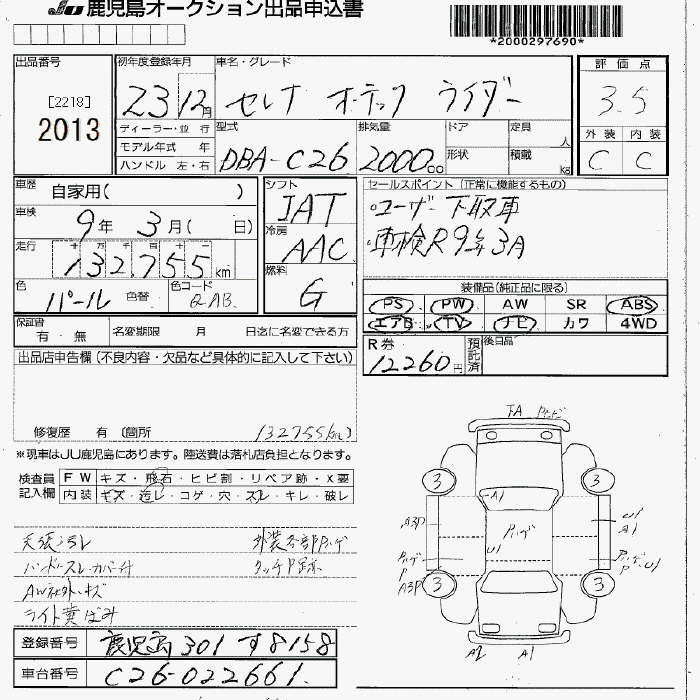 JU 鹿児島オークション出品申込書
*2000297690*
出品番号
[2218]
2013
初年度登録年月
23 12月
車名・グレード
セレナ オーテック ライダー
評価点
3.5
外装 内装
C C
ディーラー・並 行
モデル年式 年
ハンドル 左・右
型式
DBA-C26
排気量
2000cc
ドア
形状
定員 人
積載 kg
車歴
自家用( )
車検
9年 3月( 日)
走行
十 万 千 百 十 一
132,755 km
色
パール 色替
色コード
QAB
シフト
IAT
冷房
AAC
燃料
G
セールスポイント (正常に機能するもの)
ユーザー下取車
車検R9年3月
装備品(純正品に限る)
PS PW AW SR ABS
エアB TV ナビ カワ 4WD
R券
12260円
預託済
後日品
保証書
有・無
名変期限 月 日迄に名変できる方
出品店申告欄(不良内容・欠品など具体的に記入して下さい)
修復歴 有 (箇所 132755km)
※現車はJU鹿児島にあります。陸送費は落札店負担となります。
検査員
記入欄
FW キズ・飛石・ヒビ割・リペア跡・X要
内装 キズ・造レ・コゲ・穴・スレ・キレ・破レ
ハンドルスレ・カバー付
AW社外・キズ
ライト黄ばみ
外装各部
タッチP跡
3 3
A1
A3P
U1
U1
A1
P
P U1
A3P
3 3
A1
登録番号 鹿児島 301 す 8158
車台番号 C26-022661